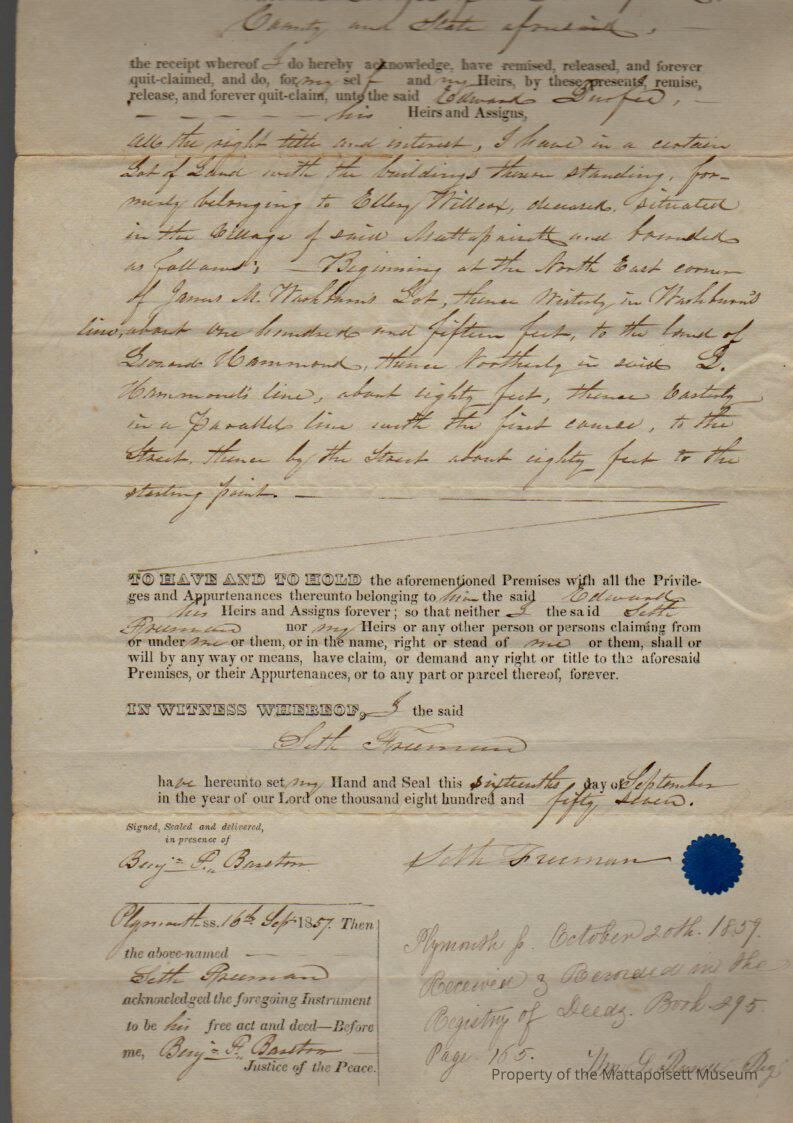 County and State aforesaid,
the receipt whereof I do hereby acknowledge, have remised, released, and forever
quit-claimed, and do, for my self and my Heirs, by these presents, remise,
release, and forever quit-claim, unto the said Edward
his Heirs and Assigns,
all the right title and interest, I have in a certain
Lot of Land with the buildings thereon standing, for-
merly belonging to Ellery Willcox, deceased, situated
in the Village of said Mattapoisett and bounded
as follows; Beginning at the North East corner
of James M. Washburn's Lot, thence Westerly in Washburn's
line, about one hundred and fifteen feet, to the land of
Leonard Hammond, thence Northerly in said L.
Hammond's line, about eighty feet, thence Easterly
in a Parallel line with the first course, to the
Street, thence by the Street about eighty feet to the
starting point.
TO HAVE AND TO HOLD the aforementioned Premises with all the Privile-
ges and Appurtenances thereunto belonging to him the said Edward
his Heirs and Assigns forever; so that neither I the said Seth
Freeman nor my Heirs or any other person or persons claiming from
or under me or them, or in the name, right or stead of me or them, shall or
will by any way or means, have claim, or demand any right or title to the aforesaid
Premises, or their Appurtenances, or to any part or parcel thereof, forever.
IN WITNESS WHEREOF, I the said
Seth Freeman
have hereunto set my Hand and Seal this sixteenth day of September
in the year of our Lord one thousand eight hundred and fifty seven.
Signed, Sealed and delivered,
in presence of
Benjn F. Barstow Seth Freeman
Plymouth ss. 16th Sept 1857. Then
the above-named
Seth Freeman
acknowledged the foregoing Instrument
to be his free act and deed—Before
me, Benjn F. Barstow
Justice of the Peace.
Plymouth ss. October 20th. 1859.
Received & Recorded in the
Registry of Deeds. Book 295.
Page 155.
Wm. S. Russell Reg
Property of the Mattapoisett Museum